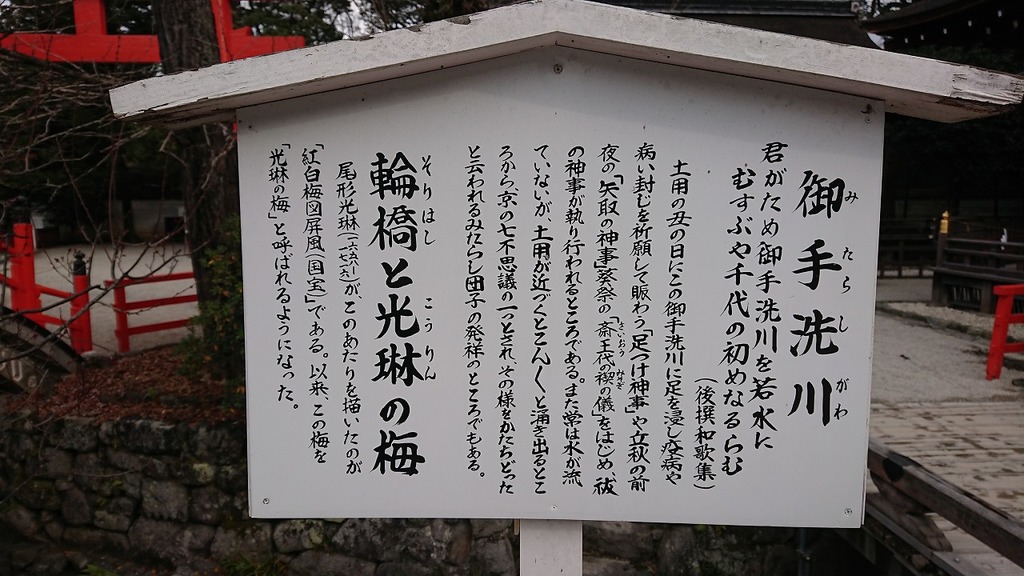 御手洗川
みたらしがわ
君がため御手洗川を若水に
むすぶや千代の初めなるらむ
(後撰和歌集)
土用の丑の日にこの御手洗川に足を浸し疫病や
病い封じを祈願して賑わう「足つけ神事」や立秋の前
夜の「矢取の神事」葵祭の「斎王代の禊の儀」をはじめ祓
さいおう みそぎ
の神事が執り行われるところである。また常は水が流
ていないが、土用が近づくとこんこんと湧き出るとこ
ろから、京の七不思議の一つとされ、その様をかたちどった
と云われるみたらし団子の発祥のところでもある。
輪橋と光琳の梅
そりはし こうりん
尾形光琳(一六五八-一七一六)が、このあたりを描いたのが
「紅白梅図屏風(国宝)」である。以来、この梅を
「光琳の梅」と呼ばれるようになった。